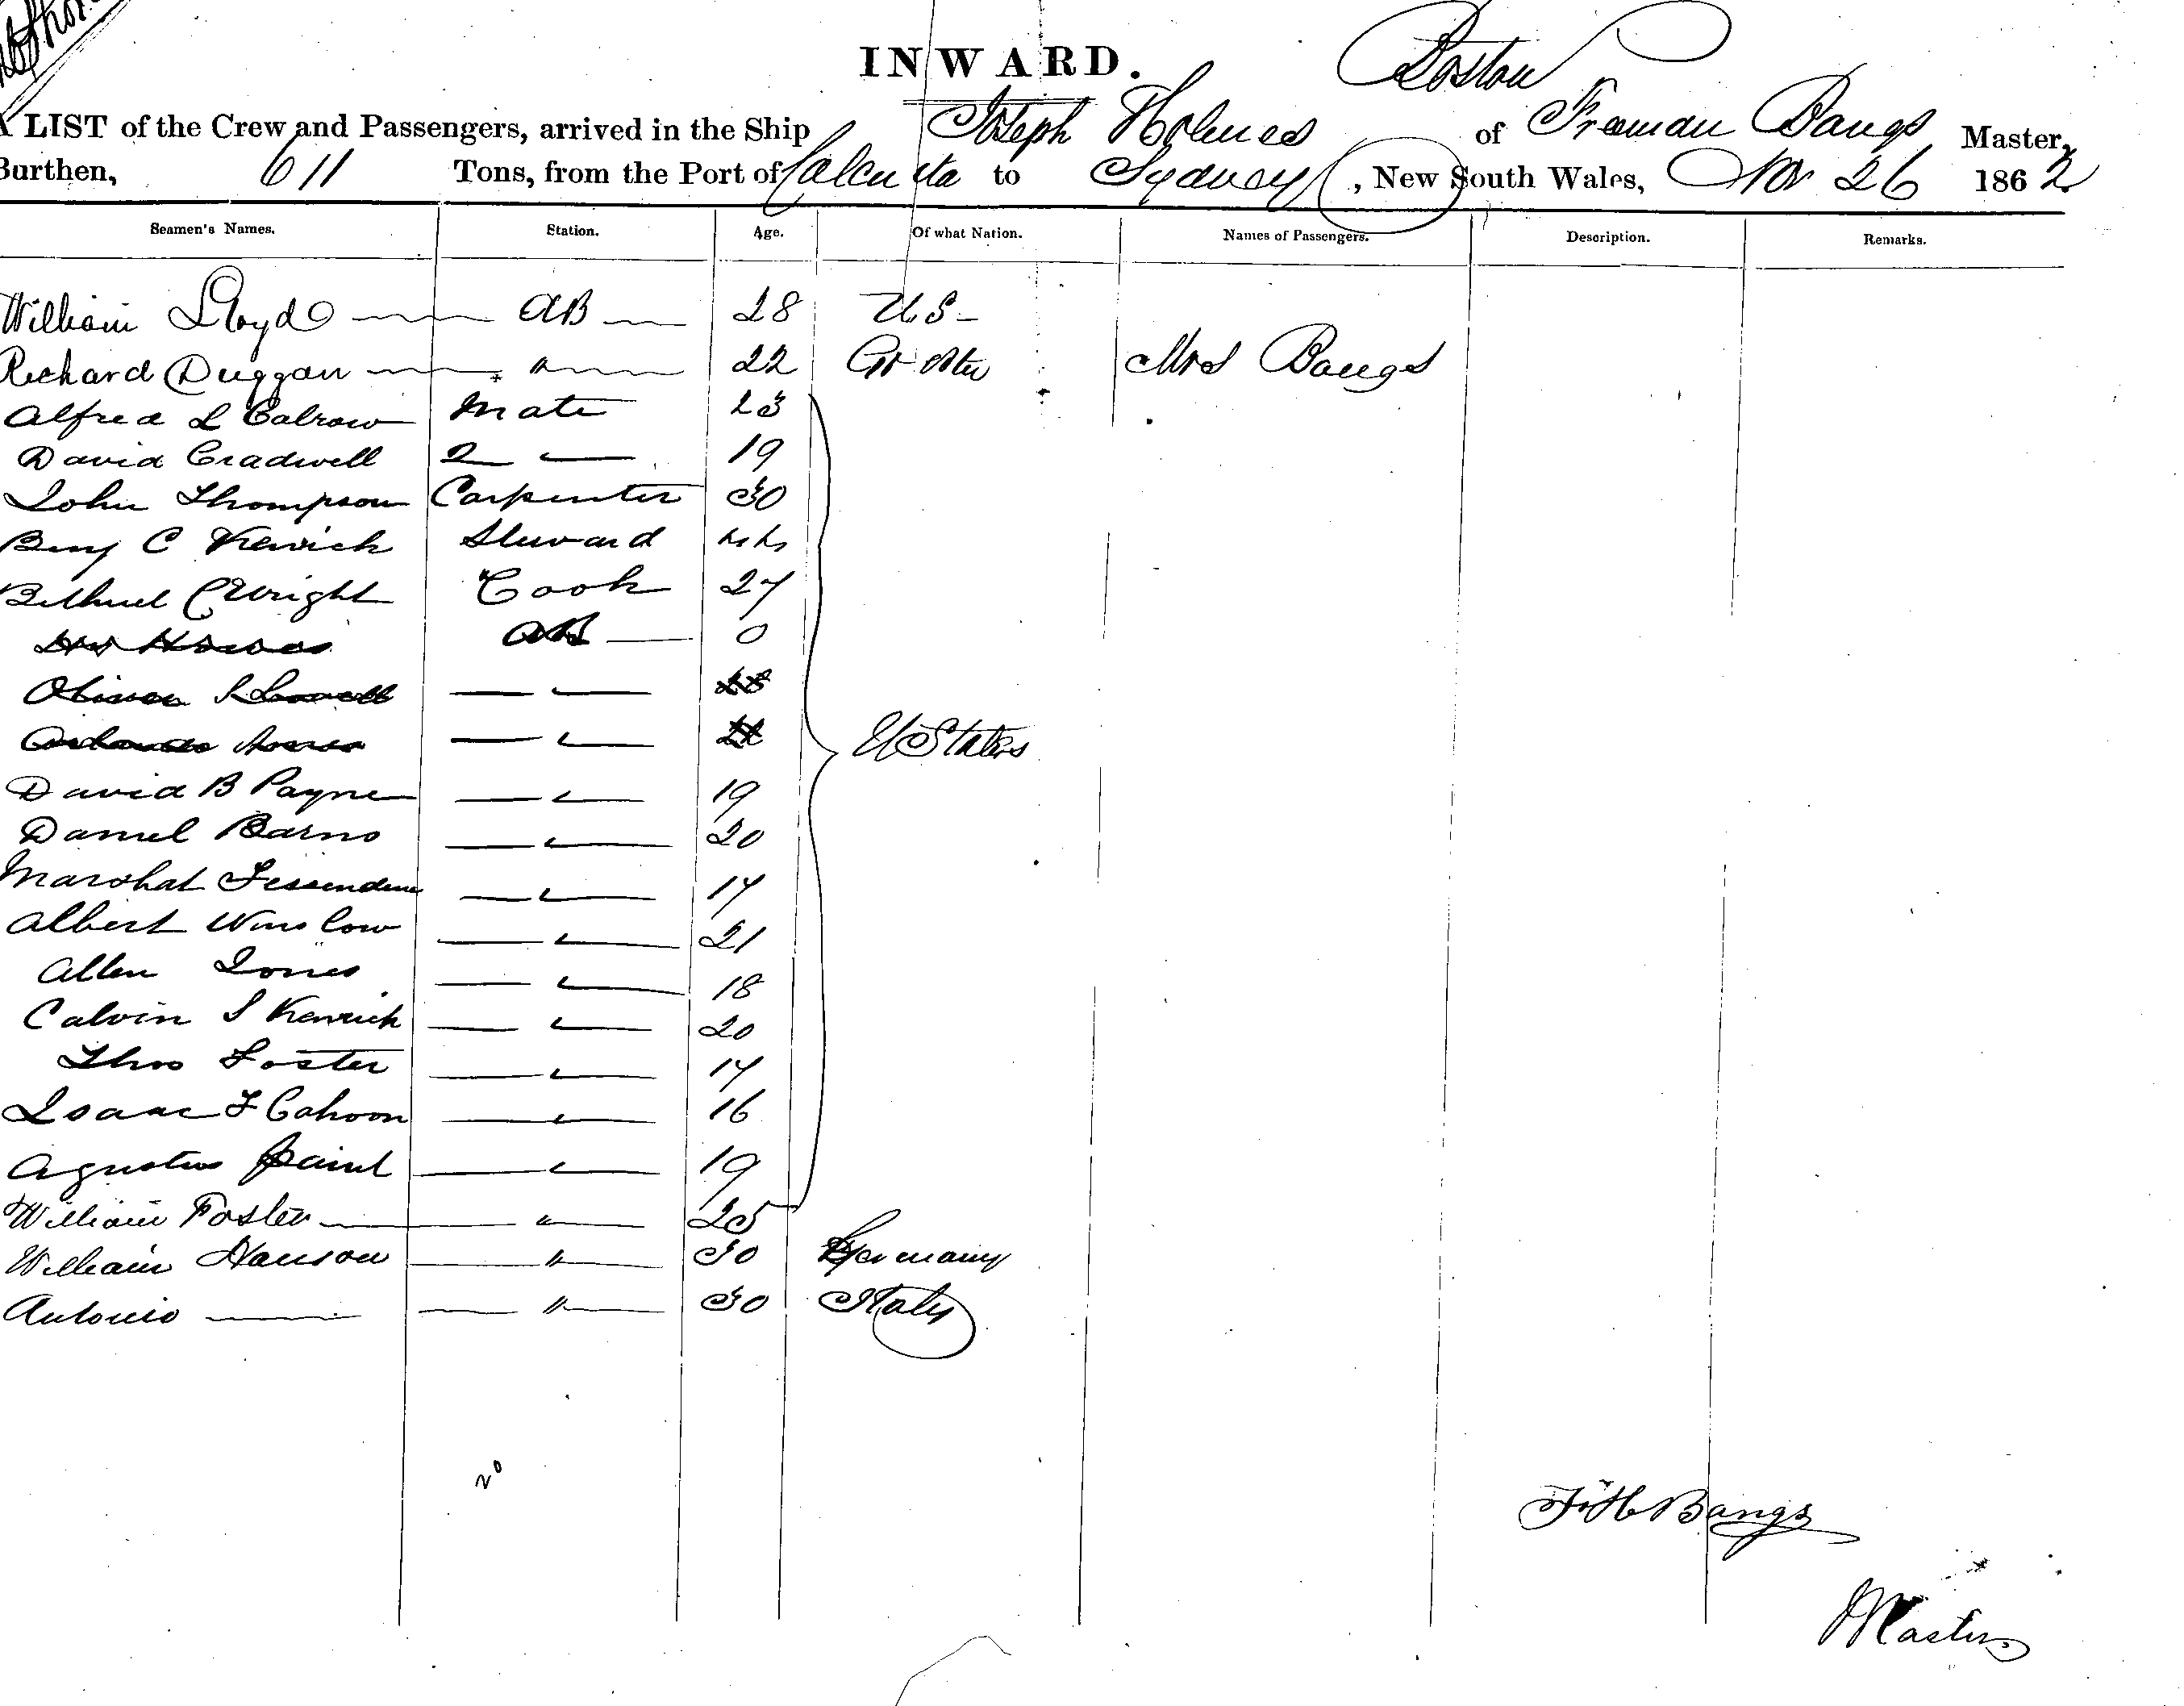 INWARD.
Boston
A LIST of the Crew and Passengers, arrived in the Ship Joseph Holmes of Freeman Bangs Master,
Burthen, 611 Tons, from the Port of Calcutta to Sydney, New South Wales, Nov 26 1862
Seamen's Names. Station. Age. Of what Nation. Names of Passengers. Description. Remarks.
William Lloyd AB 28 U.S
Richard Duggan " 22 Mrs Bangs
Alfred L Calrow Mate 23
David Cradwell 2 " 19
John Thompson Carpenter 30
Benj C Kenrick Steward 44
Bethuel C Wright Cook 27
Howes AB 0
Oliver
U States
David B Payne " 19
Daniel Barns " 20
Marshal Fessenden " 17
Albert Winslow " 21
Allen Jones " 18
Calvin S Kenrick " 20
Thos Foster " 17
Isaac F Cahoon " 16
Agustus Paine " 19
William Foster " 25
William Hanson " 30 Germany
Antonio " 30 Italy
20
F H Bangs
Master